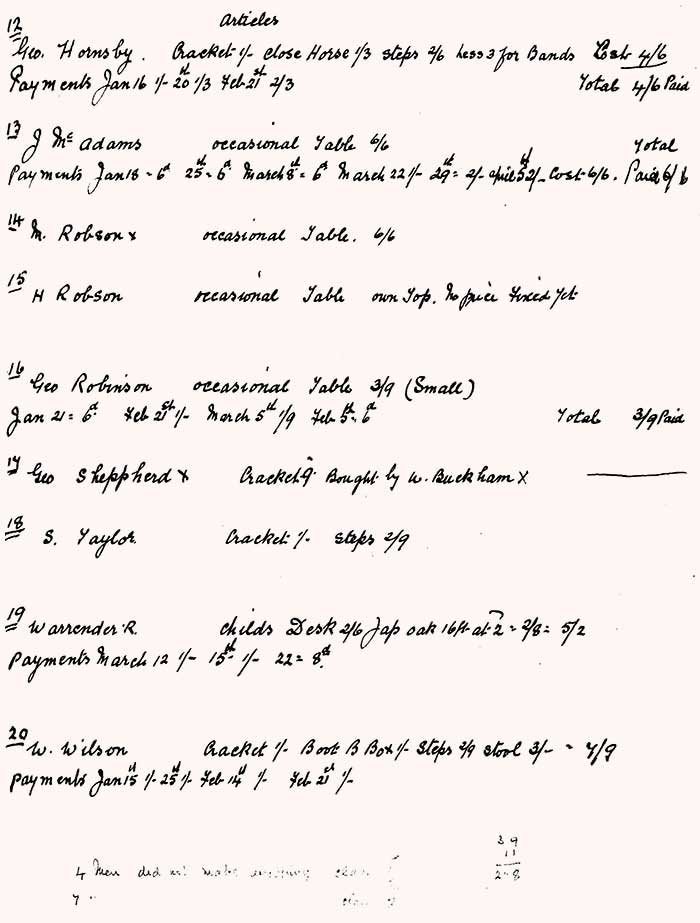 Articles
12
Geo. Hornsby. Cracket 1/- Close Horse 1/3 steps 2/6 Less 3 for Bands Cost 4/6
Payments Jan 16 1/- 20th 1/3 Feb 21st 2/3 Total 4/6 Paid
13
J Mc Adams occasional Table 6/6 Total
Payments Jan 18 = 6d 25th = 6d March 8th = 6d March 22 1/- 29th = 2/- April 5th 2/- Cost 6/6. Paid 6/6
14
M. Robson x occasional Table. 6/6
15
H Robson occasional Table own Top. No price Fixed Yet
16
Geo Robinson occasional Table 3/9 (Small)
Jan 21 = 6d Feb 21st 1/- March 5th 1/9 Feb 5th = 6d Total 3/9 Paid
17
Geo Sheppherd x Cracket 9d Bought by W. Buckham X
18
S. Taylor Cracket 1/- steps 2/9
19
Warrender R. Childs Desk 2/6 Jap oak 16ft at 2 = 2/8 = 5/2
Payments March 12 1/- 15th 1/- 22 = 8d.
20
W. Wilson Cracket 1/- Boot B Box 1/- Steps 2/9 stool 3/- = 7/9
Payments Jan 15th 1/- 25th 1/- Feb 14th 1/- Feb 21st 1/-
3 9
11
2-8
4 Men did not make anything class
7 "